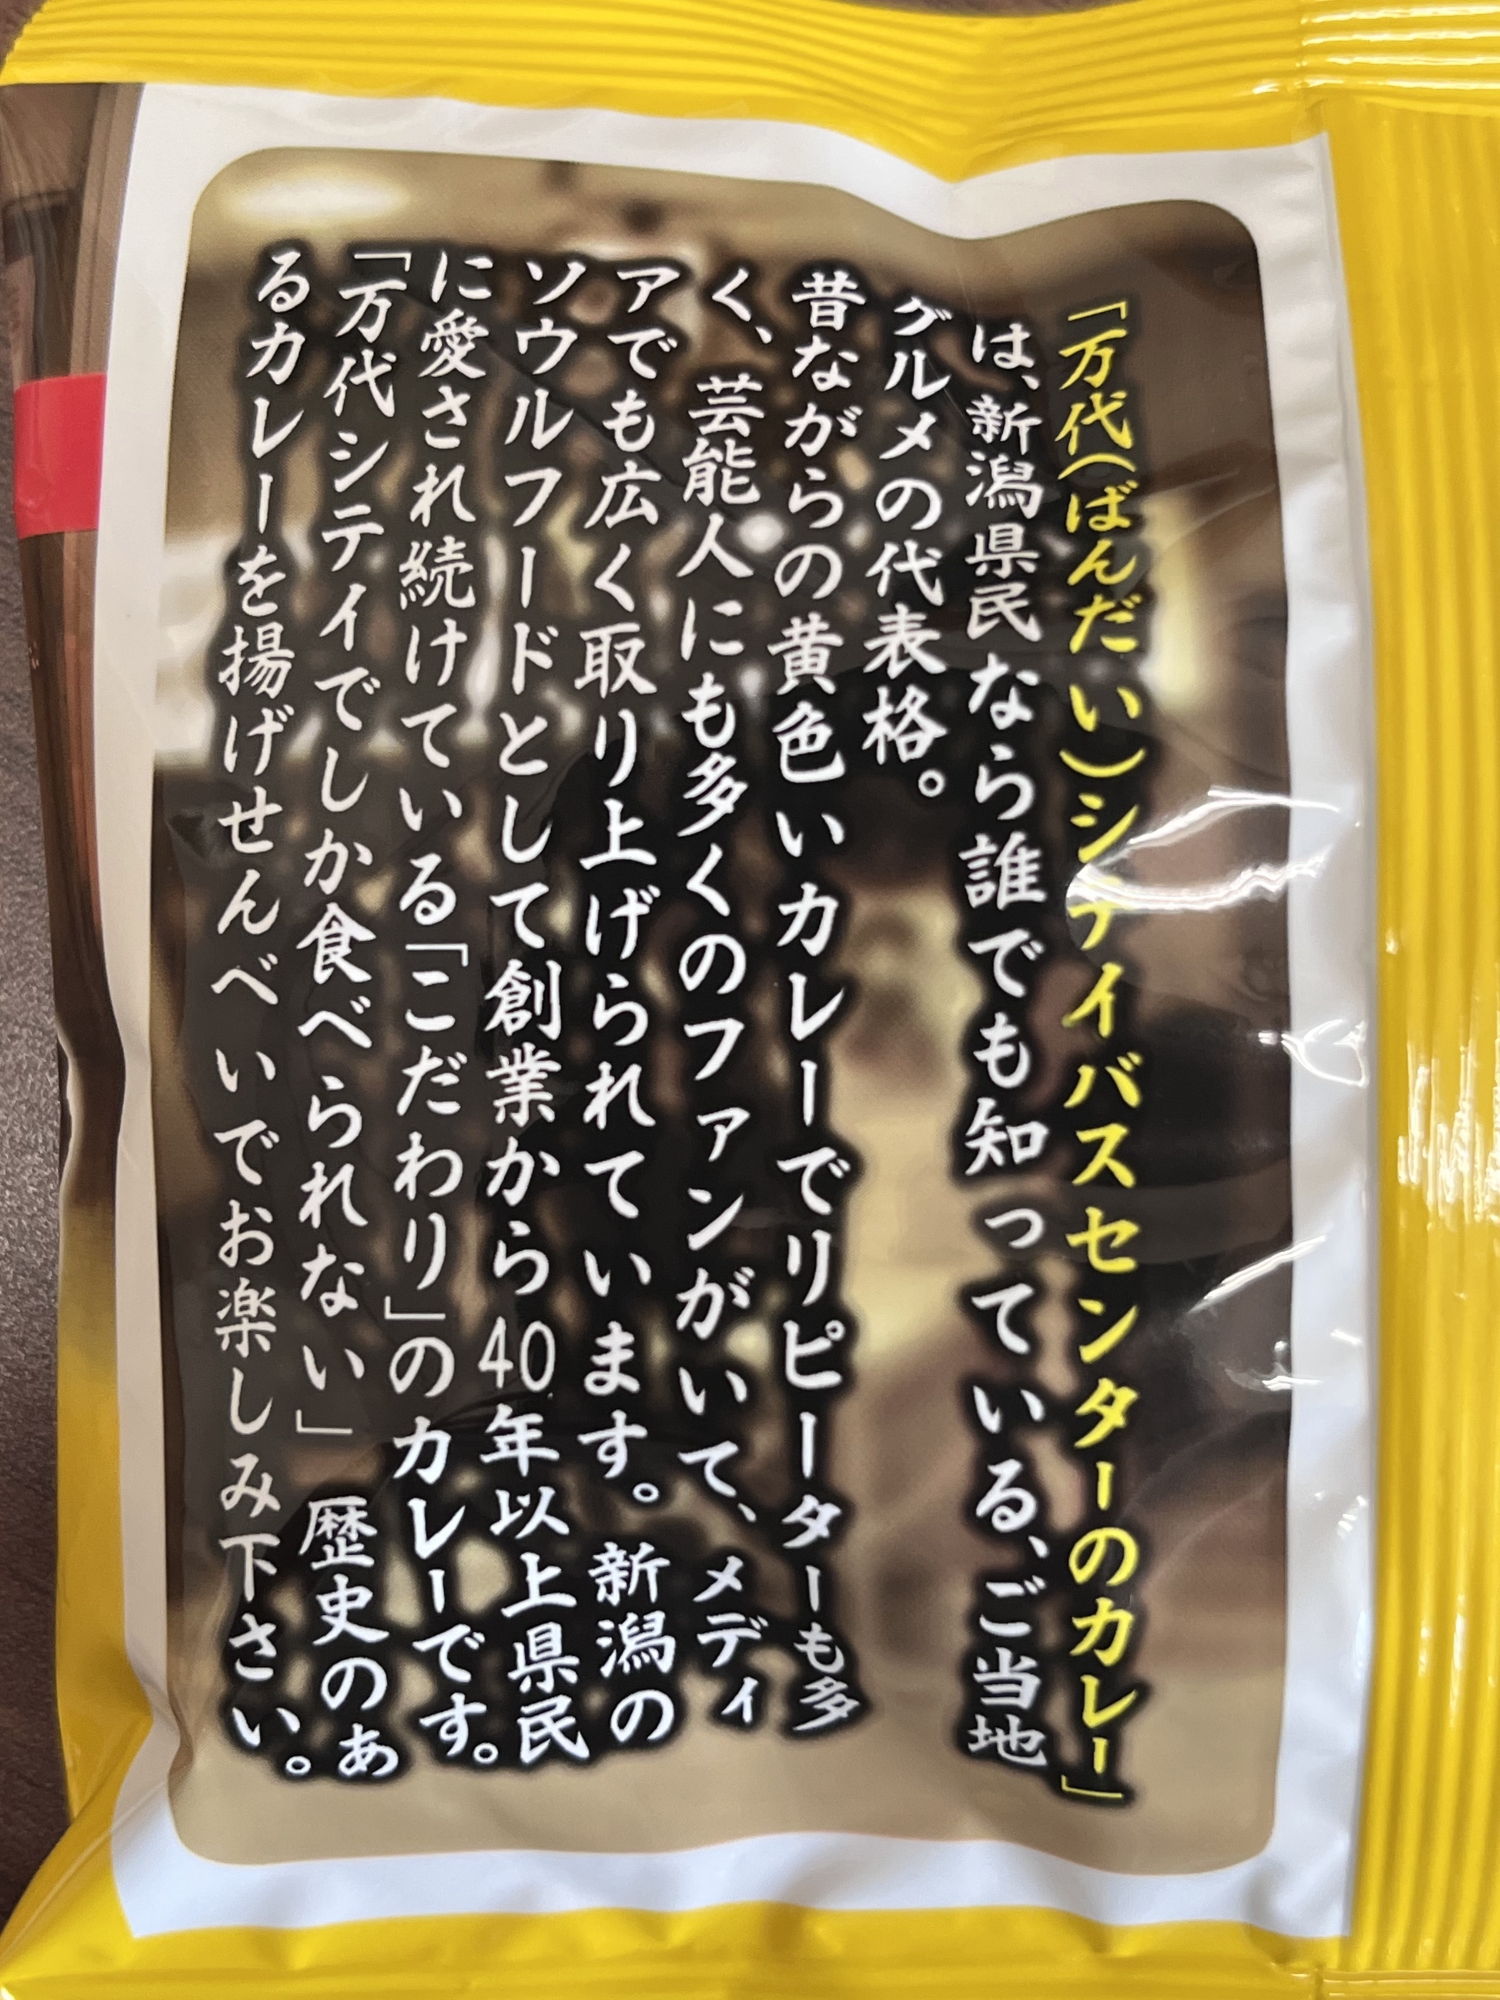 「万代(ばんだい)シテイバスセンターのカレー」
は、新潟県民なら誰でも知っている、ご当地
グルメの代表格。
昔ながらの黄色いカレーでリピーターも多
く、芸能人にも多くのファンがいて、メディ
アでも広く取り上げられています。新潟の
ソウルフードとして創業から40年以上県民
に愛され続けている「こだわり」のカレーです。
「万代シテイでしか食べられない」歴史のあ
るカレーを揚げせんべいでお楽しみ下さい。